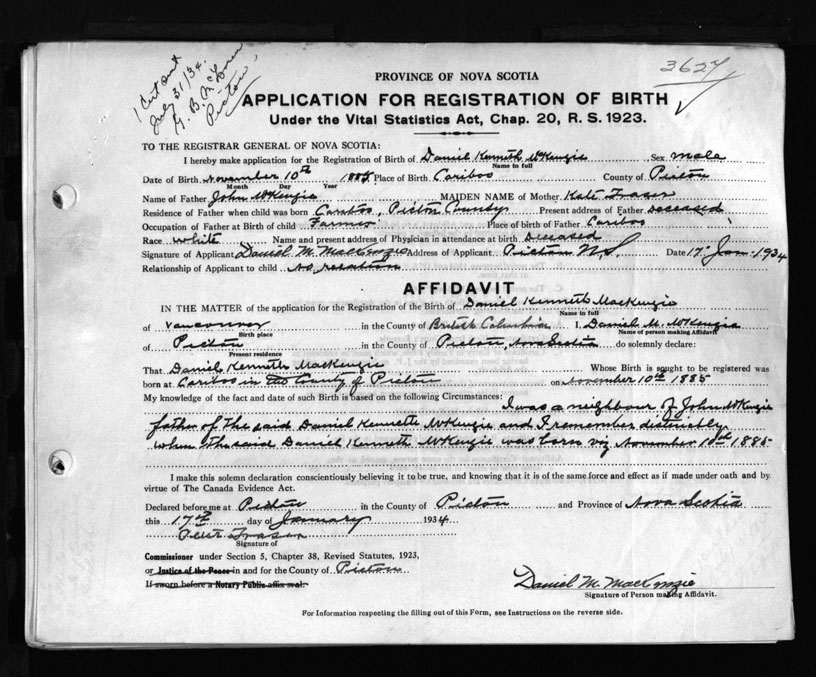 1 Cert out
July 31/34.
Pictou
3627
PROVINCE OF NOVA SCOTIA
APPLICATION FOR REGISTRATION OF BIRTH
Under the Vital Statistics Act, Chap. 20, R. S. 1923.
TO THE REGISTRAR GENERAL OF NOVA SCOTIA:
I hereby make application for the Registration of Birth of Daniel Kenneth McKenzie Sex male
Name in full
Date of Birth November 10th 1885 Place of Birth Cariboo County of Pictou
Month Day Year
Name of Father John McKenzie MAIDEN NAME of Mother Kate Fraser
Residence of Father when child was born Cariboo, Pictou County Present address of Father deceased
Occupation of Father at Birth of child Farmer Place of birth of Father Cariboo
Race white Name and present address of Physician in attendance at birth deceased
Signature of Applicant Daniel M. MacKenzie Address of Applicant Pictou N.S. Date 17" Jan. 1934
Relationship of Applicant to child no relation
AFFIDAVIT
IN THE MATTER of the application for the Registration of the Birth of Daniel Kenneth MacKenzie
Name in full
of Vancouver in the County of British Columbia I, Daniel M. McKenzie
Birth place Name of person making Affidavit
of Pictou in the County of Pictou, Nova Scotia do solemnly declare:
Present residence
That Daniel Kenneth MacKenzie Whose Birth is sought to be registered was
born at Cariboo in the County of Pictou on November 10th 1885
My knowledge of the fact and date of such Birth is based on the following Circumstances:
I was a neighbour of John McKenzie
father of the said Daniel Kenneth McKenzie and I remember distinctly
when the said Daniel Kenneth McKenzie was born viz November 10th 1885
I make this solemn declaration conscientiously believing it to be true, and knowing that it is of the same force and effect as if made under oath and by
virtue of The Canada Evidence Act.
Declared before me at Pictou in the County of Pictou and Province of Nova Scotia
this 17th day of January 1934
Fraser
Signature of
Commissioner under Section 5, Chapter 38, Revised Statutes, 1923,
or Justice of the Peace in and for the County of Pictou
If sworn before a Notary Public affix seal.
Daniel M. MacKenzie
Signature of Person making Affidavit.
For Information respecting the filling out of this Form, see Instructions on the reverse side.